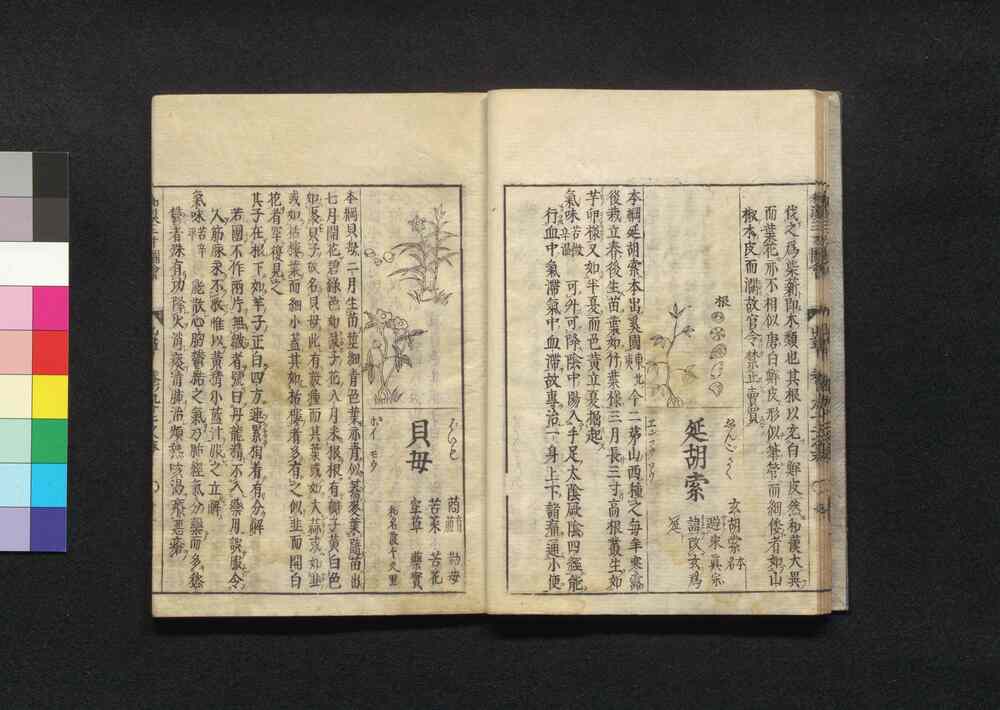 伐之爲柴薪即木類也其根以充白鮮皮然和漢大異
而葉花亦不相似唐白鮮皮形似筆管而細倭者如山
椒木皮而濶故官令禁止賣買
根
延胡索
玄胡索 本名
避宋眞宗
諱改玄爲
延
本綱延胡索本出奚國東北今二茅山西種之每年寒露
後栽立春後生苗葉如竹葉樣三月長三寸高根叢生如
芋卵樣又如半夏而色黃立夏掘起
氣味 可外可降陰中陽入手足太陰厥陰四經能
行血中氣滯氣中血滯故專治一身上下諸痛通小便
貝母
勤母
苦菜 苦花
空草 藥實
和名波久里
本綱貝母二月生苗莖細青色葉亦青似蕎麥葉隨苗出
七月開花碧綠色如鼓子花八月采根根有瓣子黃白色
如聚貝子故名貝母此有數種而其葉或如大蒜或如韭
或如栝樓葉而細小蓋其如栝樓者多有之似韭而開白
花者罕復見之
其子在根下如芋子正白四方連累相着有分解
若圓不作兩片無皺者號曰丹龍精不入藥用誤服令
人筋脉永不收惟以黃精小藍汁服之立解
氣味 辛苦平 能散心胸鬱結之氣乃肺經氣分藥而多愁
鬱者殊有功降火消痰清肺治煩熱咳渴瘡惡瘡